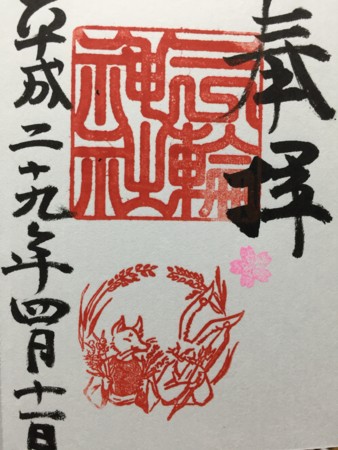 奉拝
三輪神社
平成二十九年四月十一日